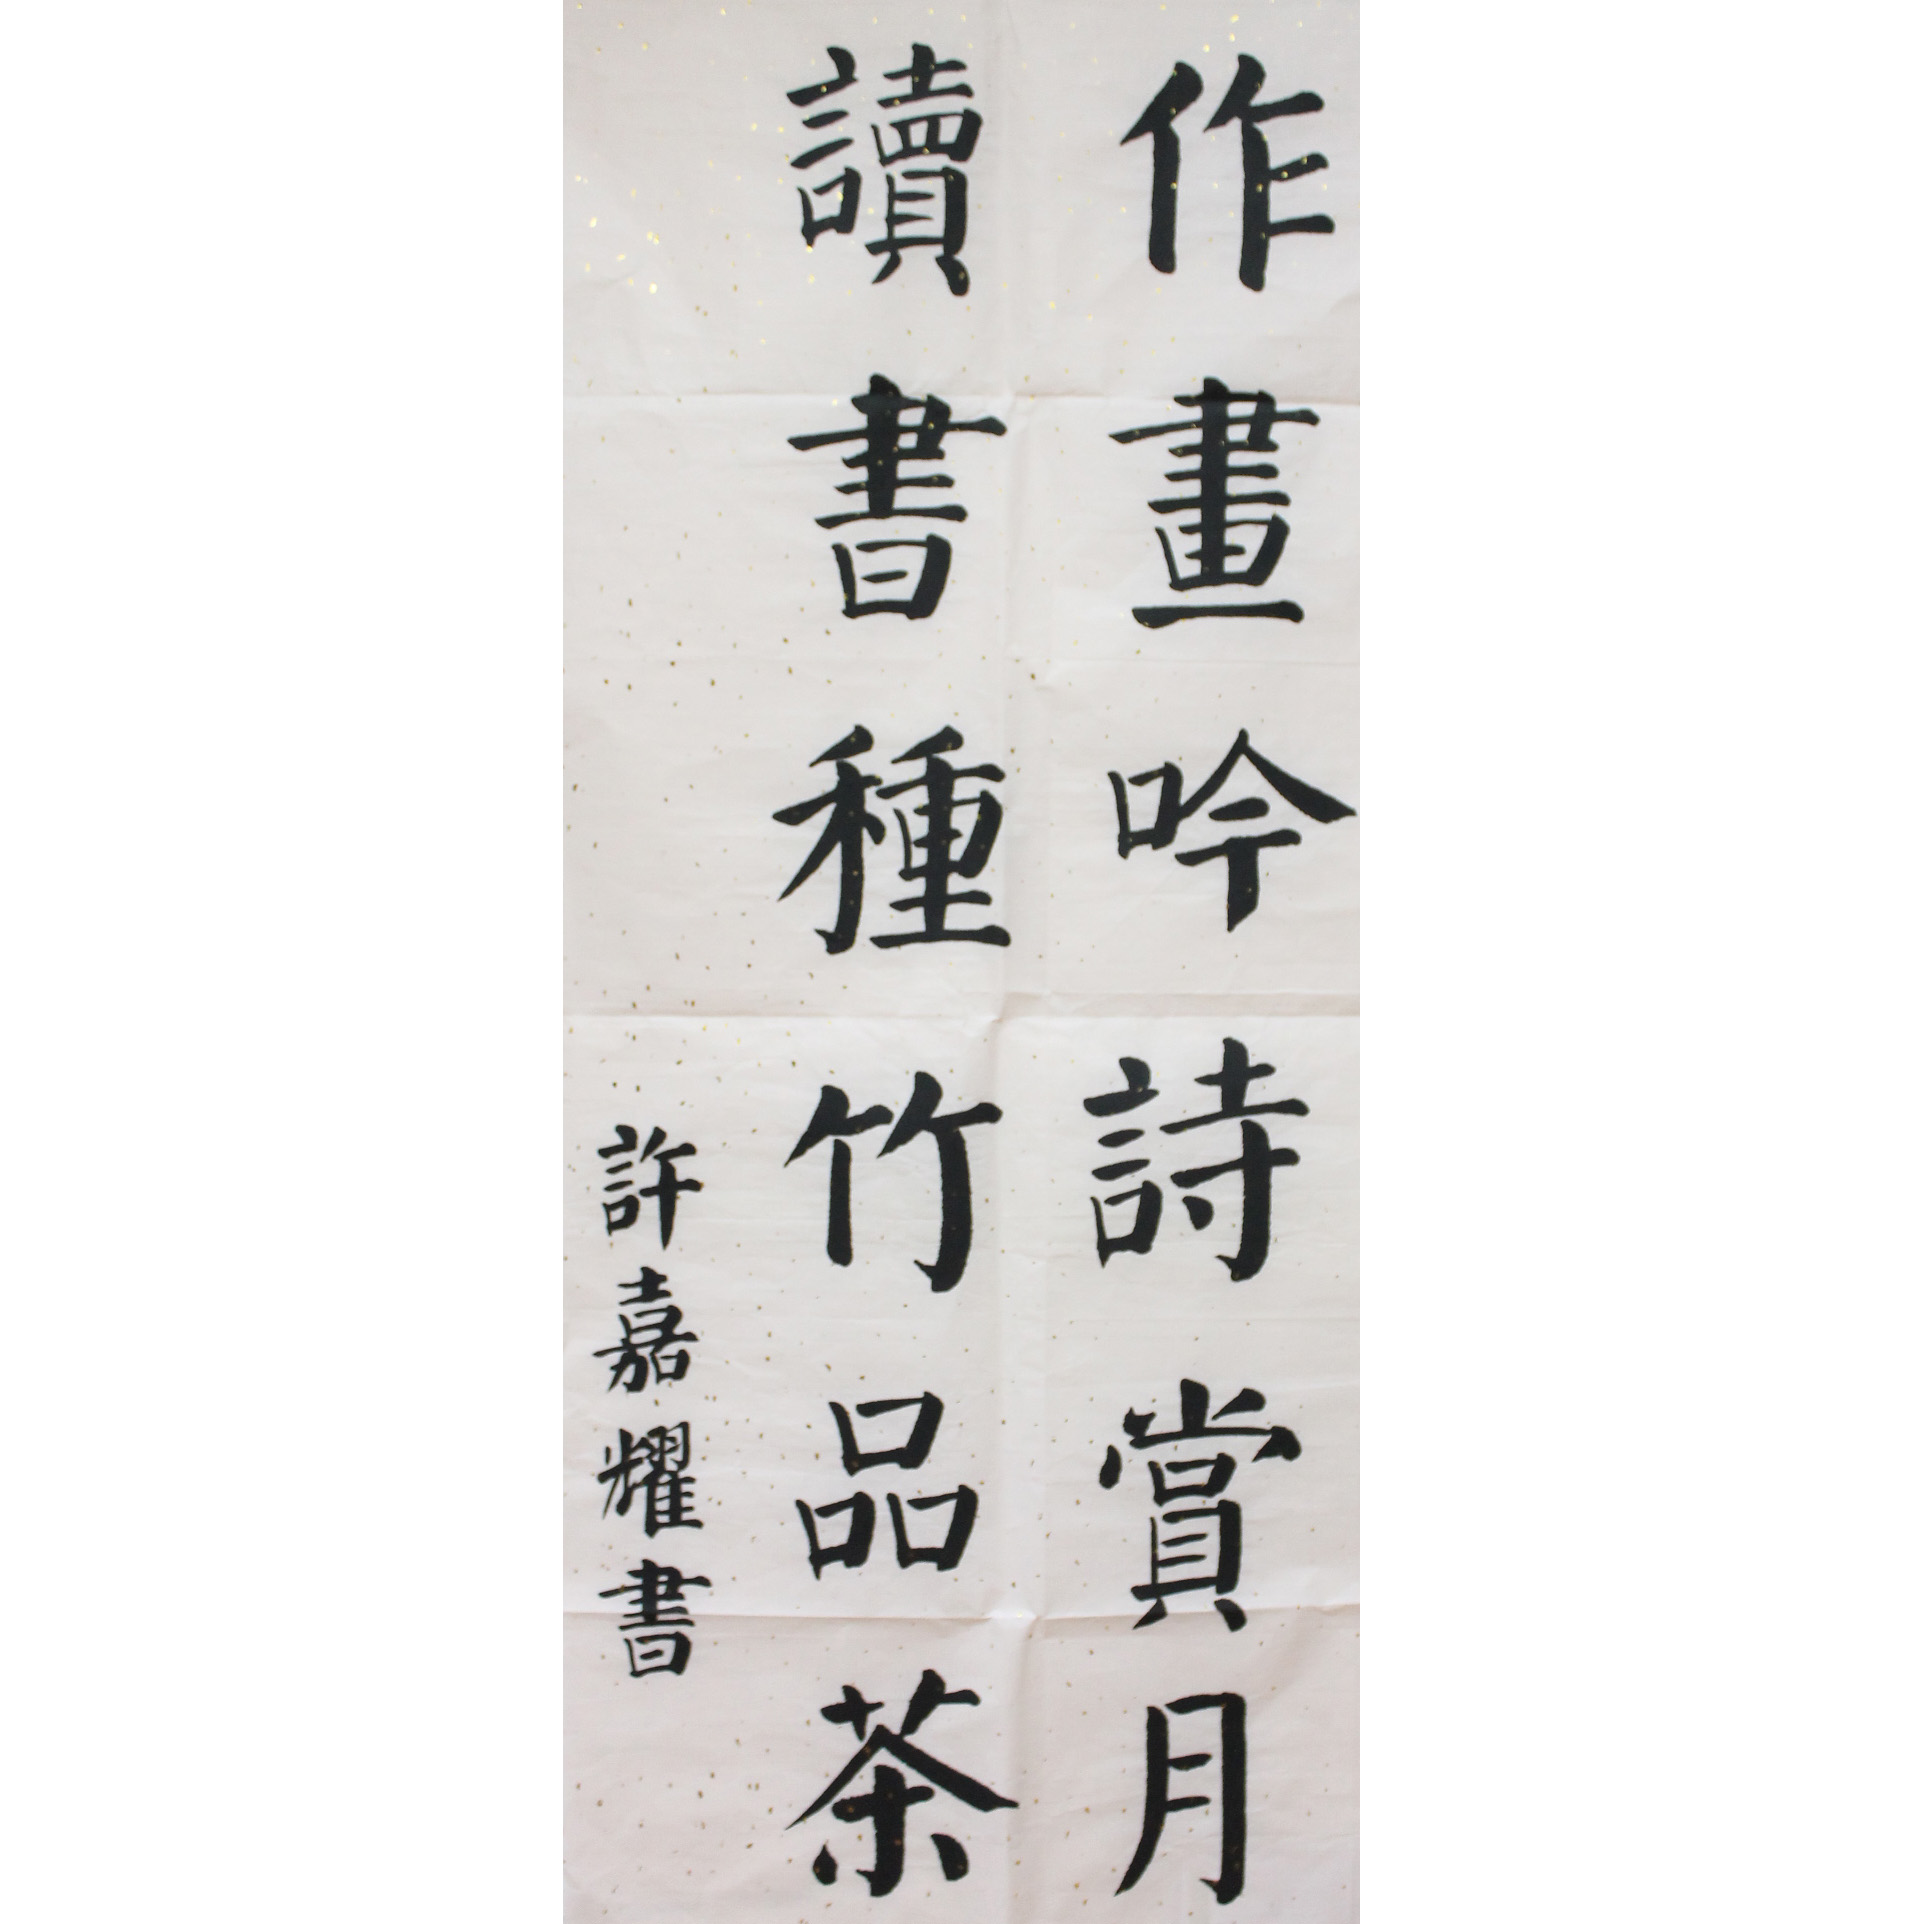 作畫吟詩賞月
讀書種竹品茶
許嘉耀書